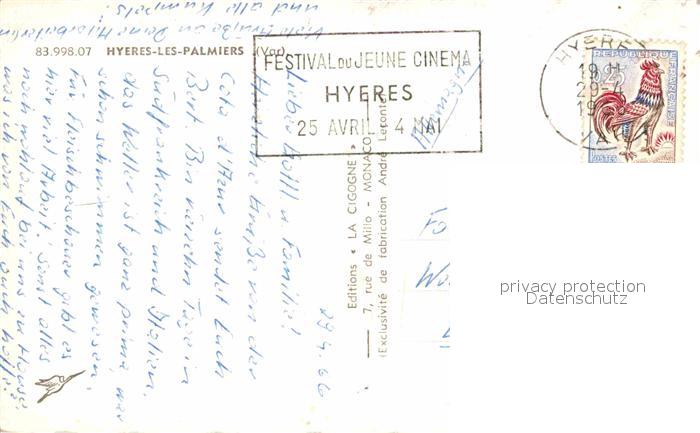 83.998.07 HYERES-LES-PALMIERS (Var)
FESTIVAL DU JEUNE CINEMA
HYERES
25 AVRIL 4 MAI
HYERES
19 H
29-4
19
VAR
REPUBLIQUE FRANÇAISE
0,25
POSTES
Editions « LA CIGOGNE »
7, rue de Millo - MONACO
(Exclusivité de fabrication André Leconte)
29.4.66
Lieber u. Familie!
Herzliche Grüße von der
Cote d'Azur sendet Euch
Bert. Bin Tage in
Südfrankreich und Italien.
das Wetter ist ganz prima, war
schon schwimmen gewesen.
Für Fleischbeschauer gibt es
hier viel Arbeit! Sonst alles
noch wohlauf bei uns zu Hause
was ich von Euch auch hoffe.
Viele Grüße an Deine Mitarbeiter
und alle Kumpels!
Fa
privacy protection
Datenschutz